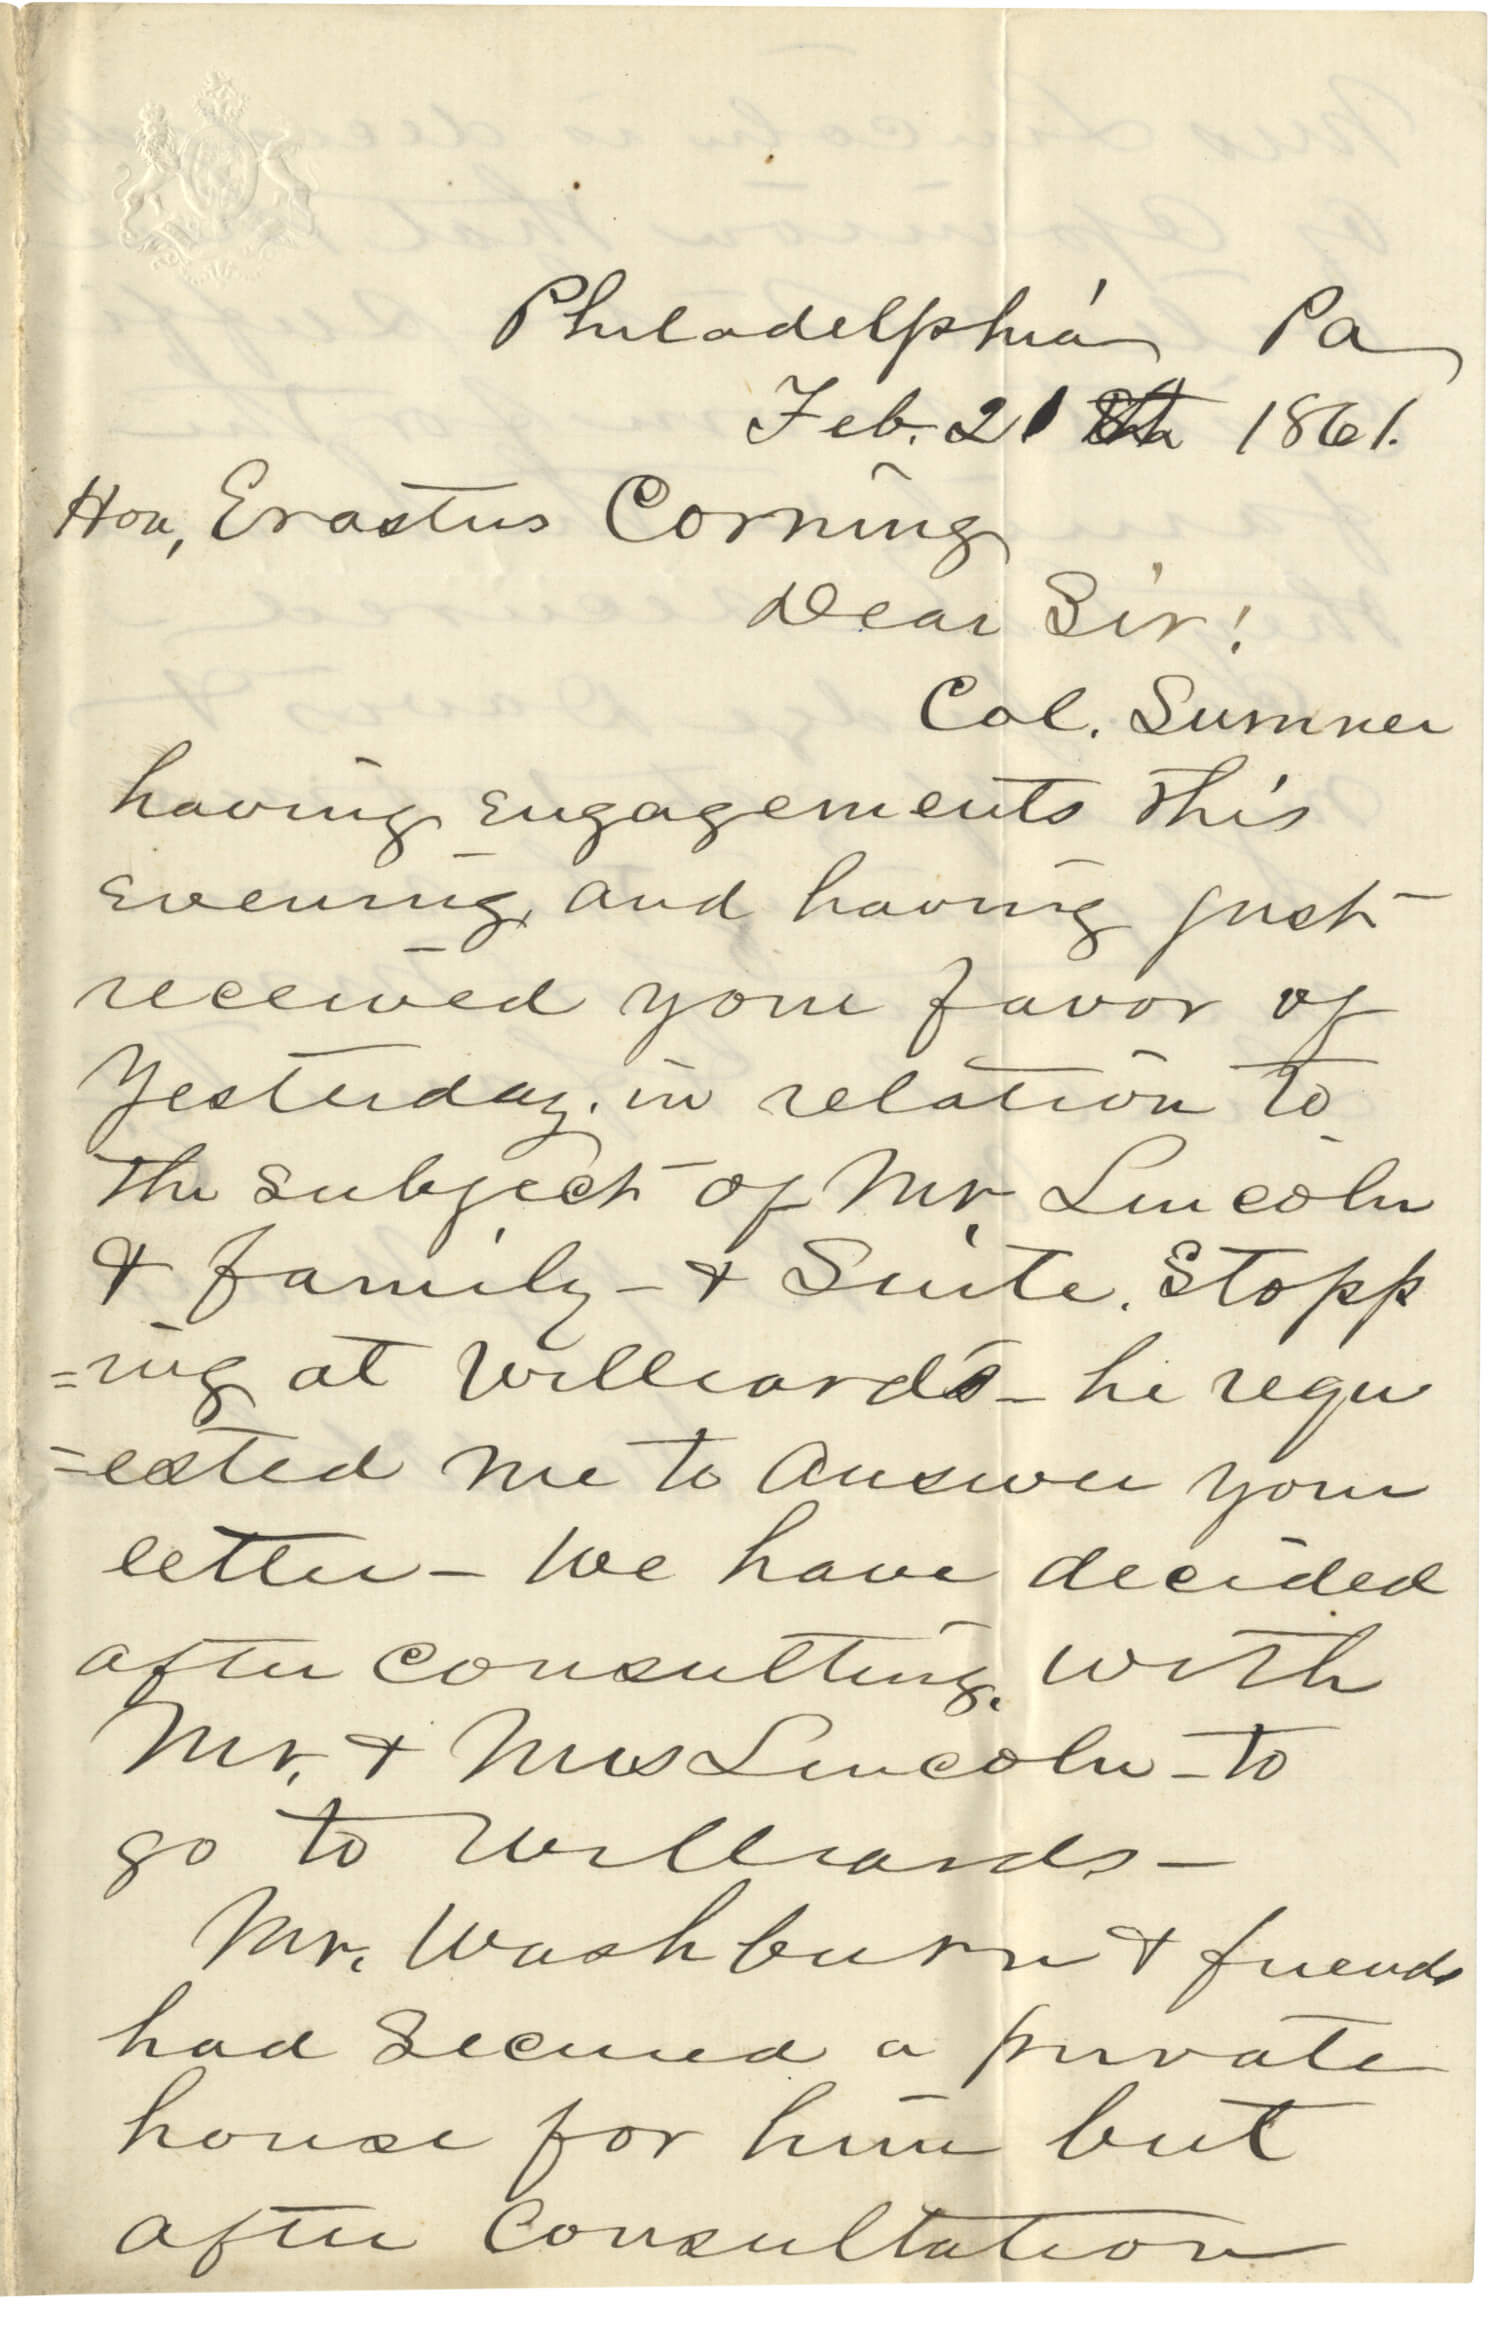 Philadelphia Pa
Feb. 21 1861.
Hon, Erastus Corning
Dear Sir!
Col. Sumner
having engagements this
evening, and having just
received your favor of
Yesterday, in relation to
the subject of Mr. Lincoln
& family - & Suite. Stopp
=ing at Williard's - he requ
=ested me to answer your
letter - We have decided
after consulting, with
Mr. & Mrs Lincoln - to
go to Williards -
Mr. Washburn & friends
had secured a private
house for him but
after consultation